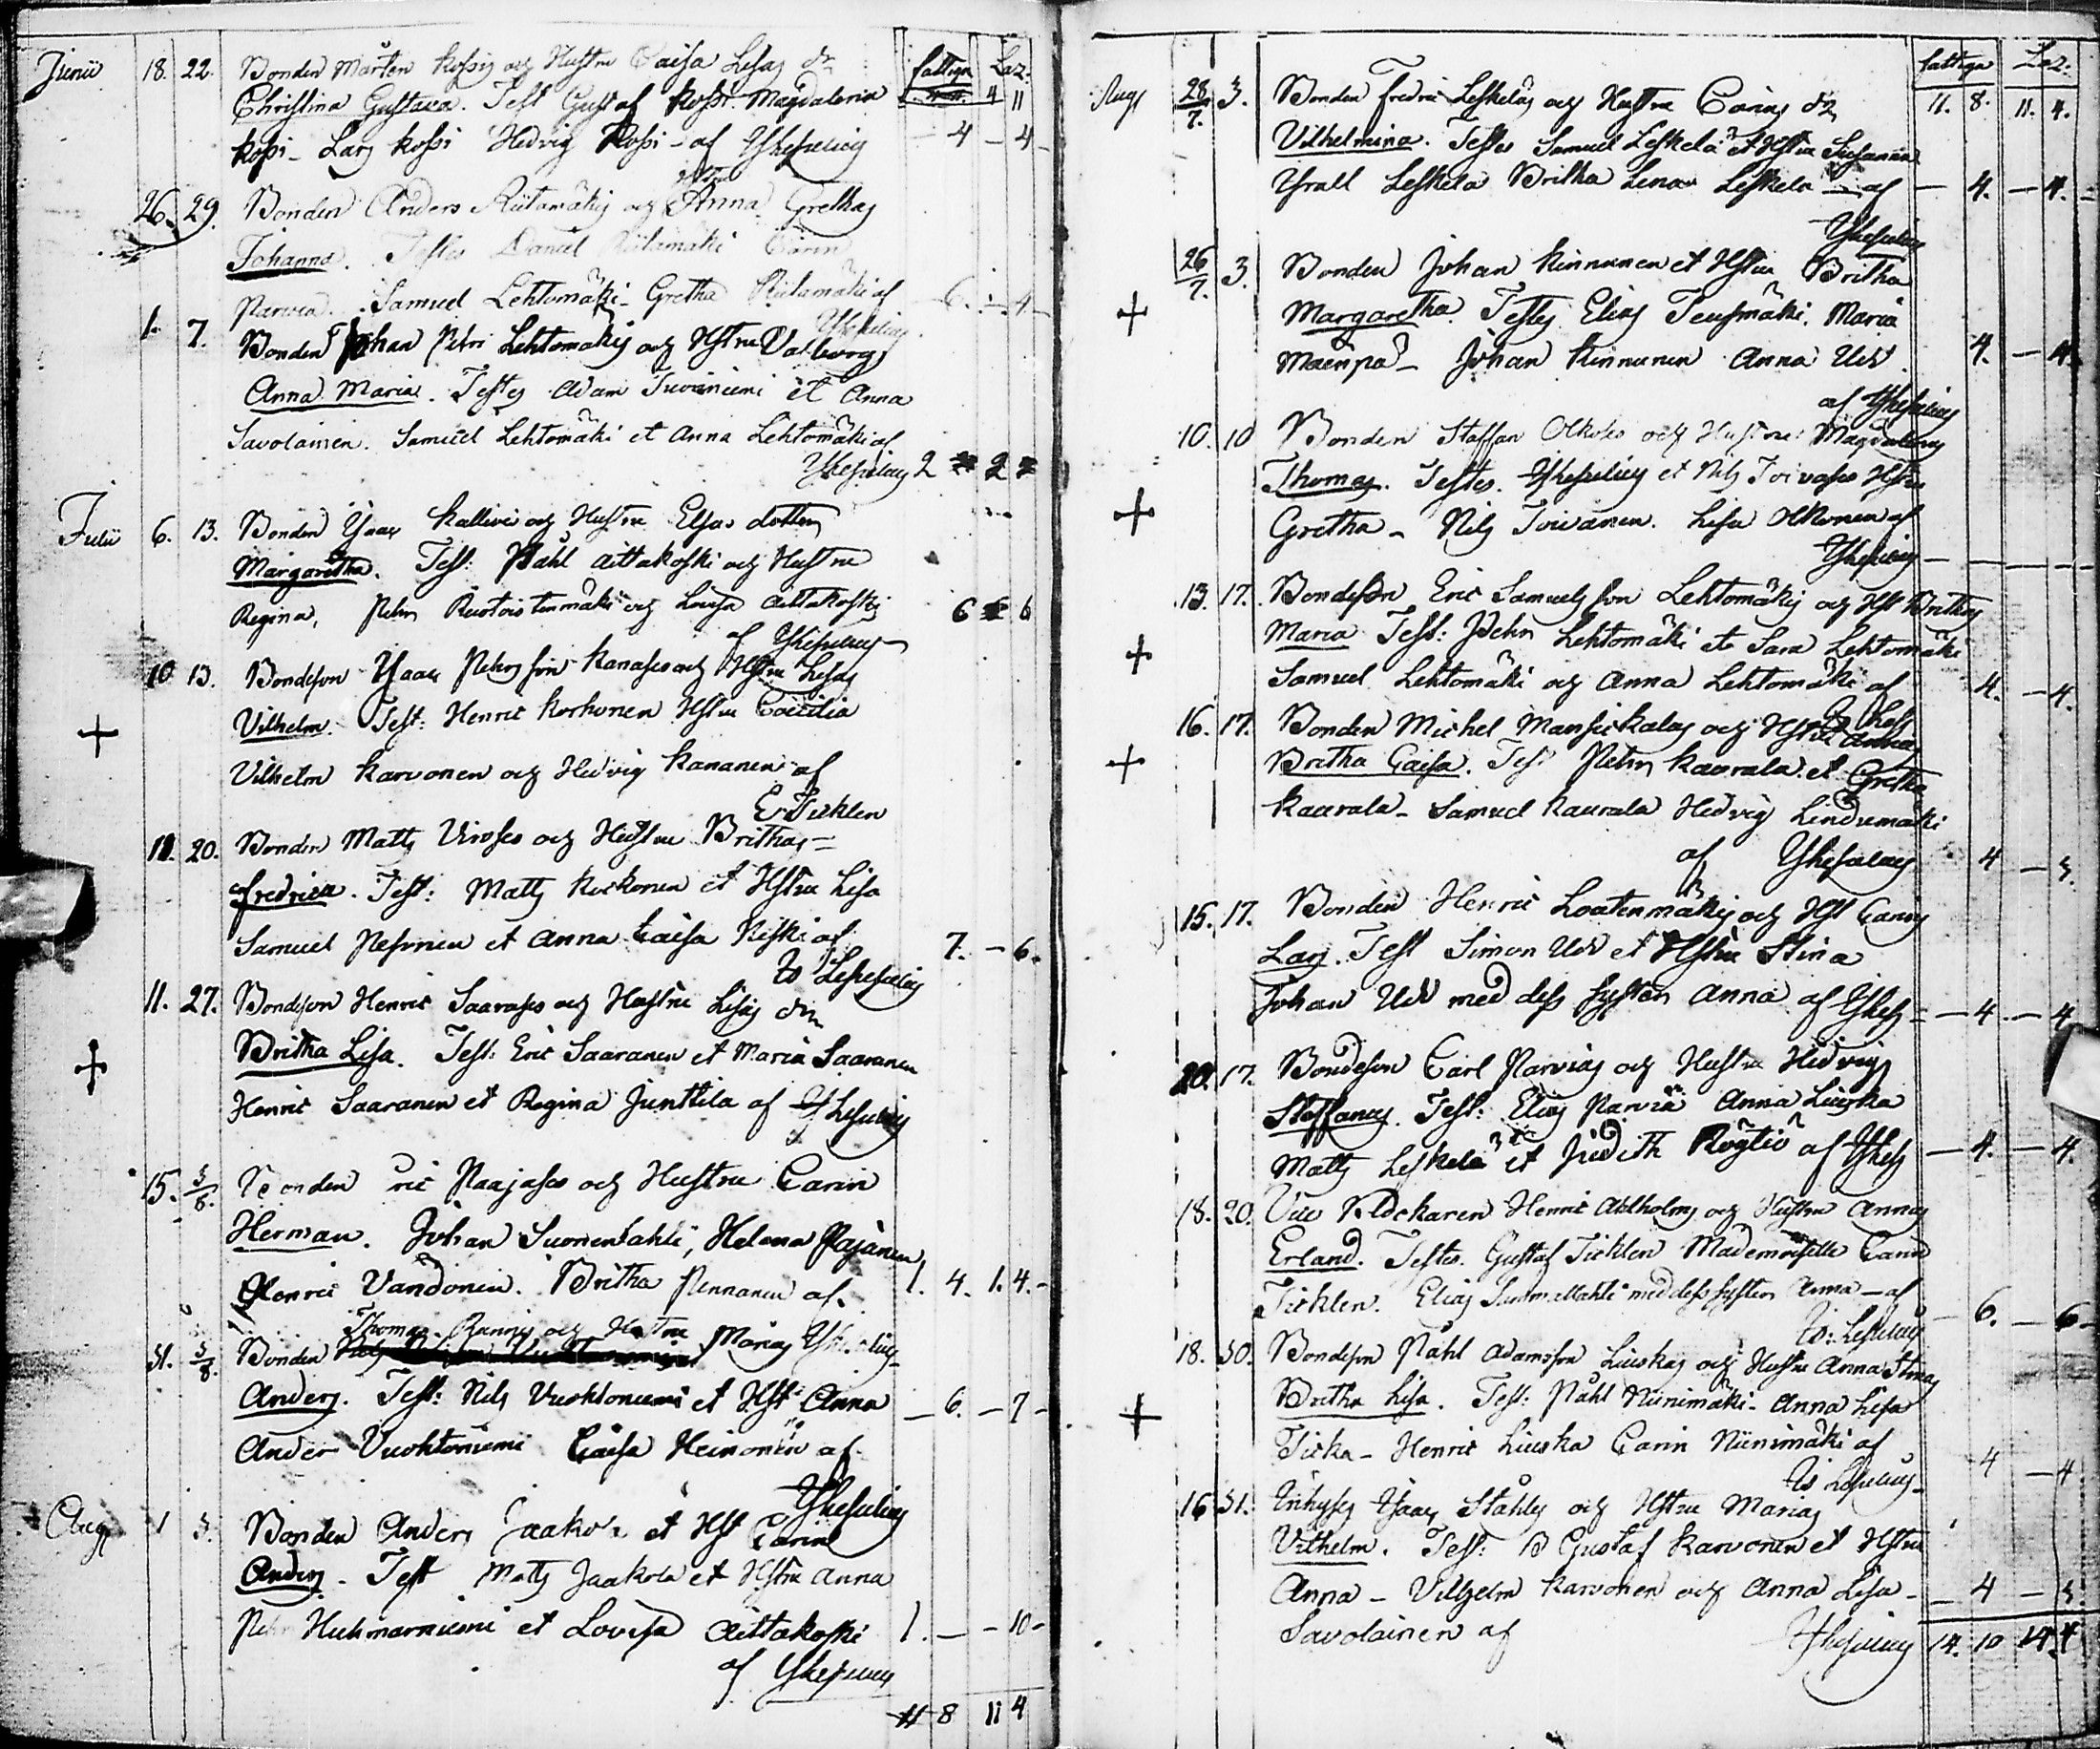 fattiga Laz:
Junii 18. 22. Bonden Mårten Kossis och Hustru Caisa Lisas dr 4 11
Christina Gustava. Test Gustaf Kossi. Magdalena
Kossi - Lars Kossi Hedvig Kossi - af - 4 - 4 -
26. 29. Bonden Anders Riitamäkis och Hstru Anna Grethas
Johanna. Testes Daniel Riitamäki Carin
Parvia. Samuel Lehtomäki - Gretha Riitamäki af - 6. - 4 -
1. 7. Bonden Johan Petri Lehtomäkis och Hstru Valborgs
Anna Maria. Testes Adam Juvaniemi et Anna
Savolainen. Samuel Lehtomäki et Anna Lehtomäki af
2 2
Julii 6. 13. Bonden Ysaac Kallivi och Hustru Elsas dotter
Margaretha. Test: Påhl Aittakoski och Hustru
Regina, Petr Ruotoistenmäki och Lovisa Aittakoski 6 6
af
10 13. Bondeson Ysaac Petersson Kanases och Hstru Lisas
Vilhelm. Test: Henric Korhonen Hstru Cæcilia
Vilhelm Karvonen och Hedvig Kananen af
E Ticklen
11. 20. Bonden Matts Vivoses och Hustru Brithas -
Fredrica. Test: Matts Kockonen et Hstru Lisa
Samuel Pesonen et Anna Caisa Niski af 7. - 6.
11. 27. Bondeson Henric Saarases och Hustru Lisas dr
Britha Lisa. Test: Eric Saaranen et Maria Saaranen
Henric Saaranen et Regina Junttila af
15. 3/8. Bonden Eric Paajases och Hustru Carin
Herman. Johan Suonenlahti, Helena Pajanen
Henric Vandonen. Britha Pennanen af. 1. 4. 1. 4. -
Thomas Rannis och Hustru
31. 3/8. Bonden Marias
Anders. Test: Nils Vuohtoniemi et Hst: Anna - 6. - 7 -
Anders Vuohtoniemi Caisa Heinonen af
Aug 1 3. Bonden Anders Jaakola et Hst Carin
Anders - Test Matts Jaakola et Hstru Anna
Petr Huhmarniemi et Lovisa Aittakoski 1. - - 10 -
af
11 8 11 4
fattiga Laz:
Aug 28/7. 3. Bonden Fredric Leskeläs och Hustru Carins dr 11. 8. 11. 4.
Vilhelmina. Testes Samuel Leskelä et Hstru Susanna
Ysrall Leskela Britha Lena Leskela - af - 4. - 4. -
26/7. 3. Bonden Johan Kinnunen et Hstru Britha
Margaretha. Testes Elias Teusmäki. Maria
Mäenpä - Johan Kinnunen Anna Udd 4. - 4.
af
10. 10 Bonden Staffan Olkoses och Hustru Magdalenas
Thomas. Testes. et Nils Toivases Hstru
Gretha - Nils Toivanen. Lisa Olkonen af
13. 17. Bondeson Eric Samuelsson Lehtomäkis och Hst Brithas
Maria Test: Petri Lehtomäki et Sara Lehtomäki
Samuel Lehtomäki och Anna Lehtomäki af 4. - 4.
16. 17. Bonden Michel Mansickalas och Hstru Annas
Britha Caisa. Test Petri Kaurala et Gretha
Kaurala - Samuel Kaurala Hedvig Lindumäki
af 4 - 3.
15. 17. Bonden Henric Loutenmäkis och Hst Carins
Lars. Test Simon Udd et Hstru Stina
Johan Udd med dess syster Anna af - 4 - 4
20. 17. Bondeson Carl Parvias och Hustru Hedvigs
Steffanus. Test: Elias Parviä Anna Liuska
Matts Leskelä et Judith Röytiö af - 4. - 4.
18. 20. Henric Ahlholms och Hustru Annas
Erland. Testes. Gustaf Ticklen Mademoiselle Carin
Ticklen. Elias Summallahti med dess syster Anna - af - 6. - 6
18. 30. Bondeson Påhl Adamsson Liuskas och Hustru Anna Stinas
Britha Lisa. Test: Påhl Niinimäki - Anna Lisa
Ticka - Henric Liuska Carin Niinimäki af 4 - 4
16 31. Inhyses Ysaac Ståhls och Hstru Marias
Vilhelm. Test: B Gustaf Karvonen et Hstru
Anna - Vilhelm Karvonen och Anna Lisa - 4 - 3
Savolainen af 14. 10 14 4